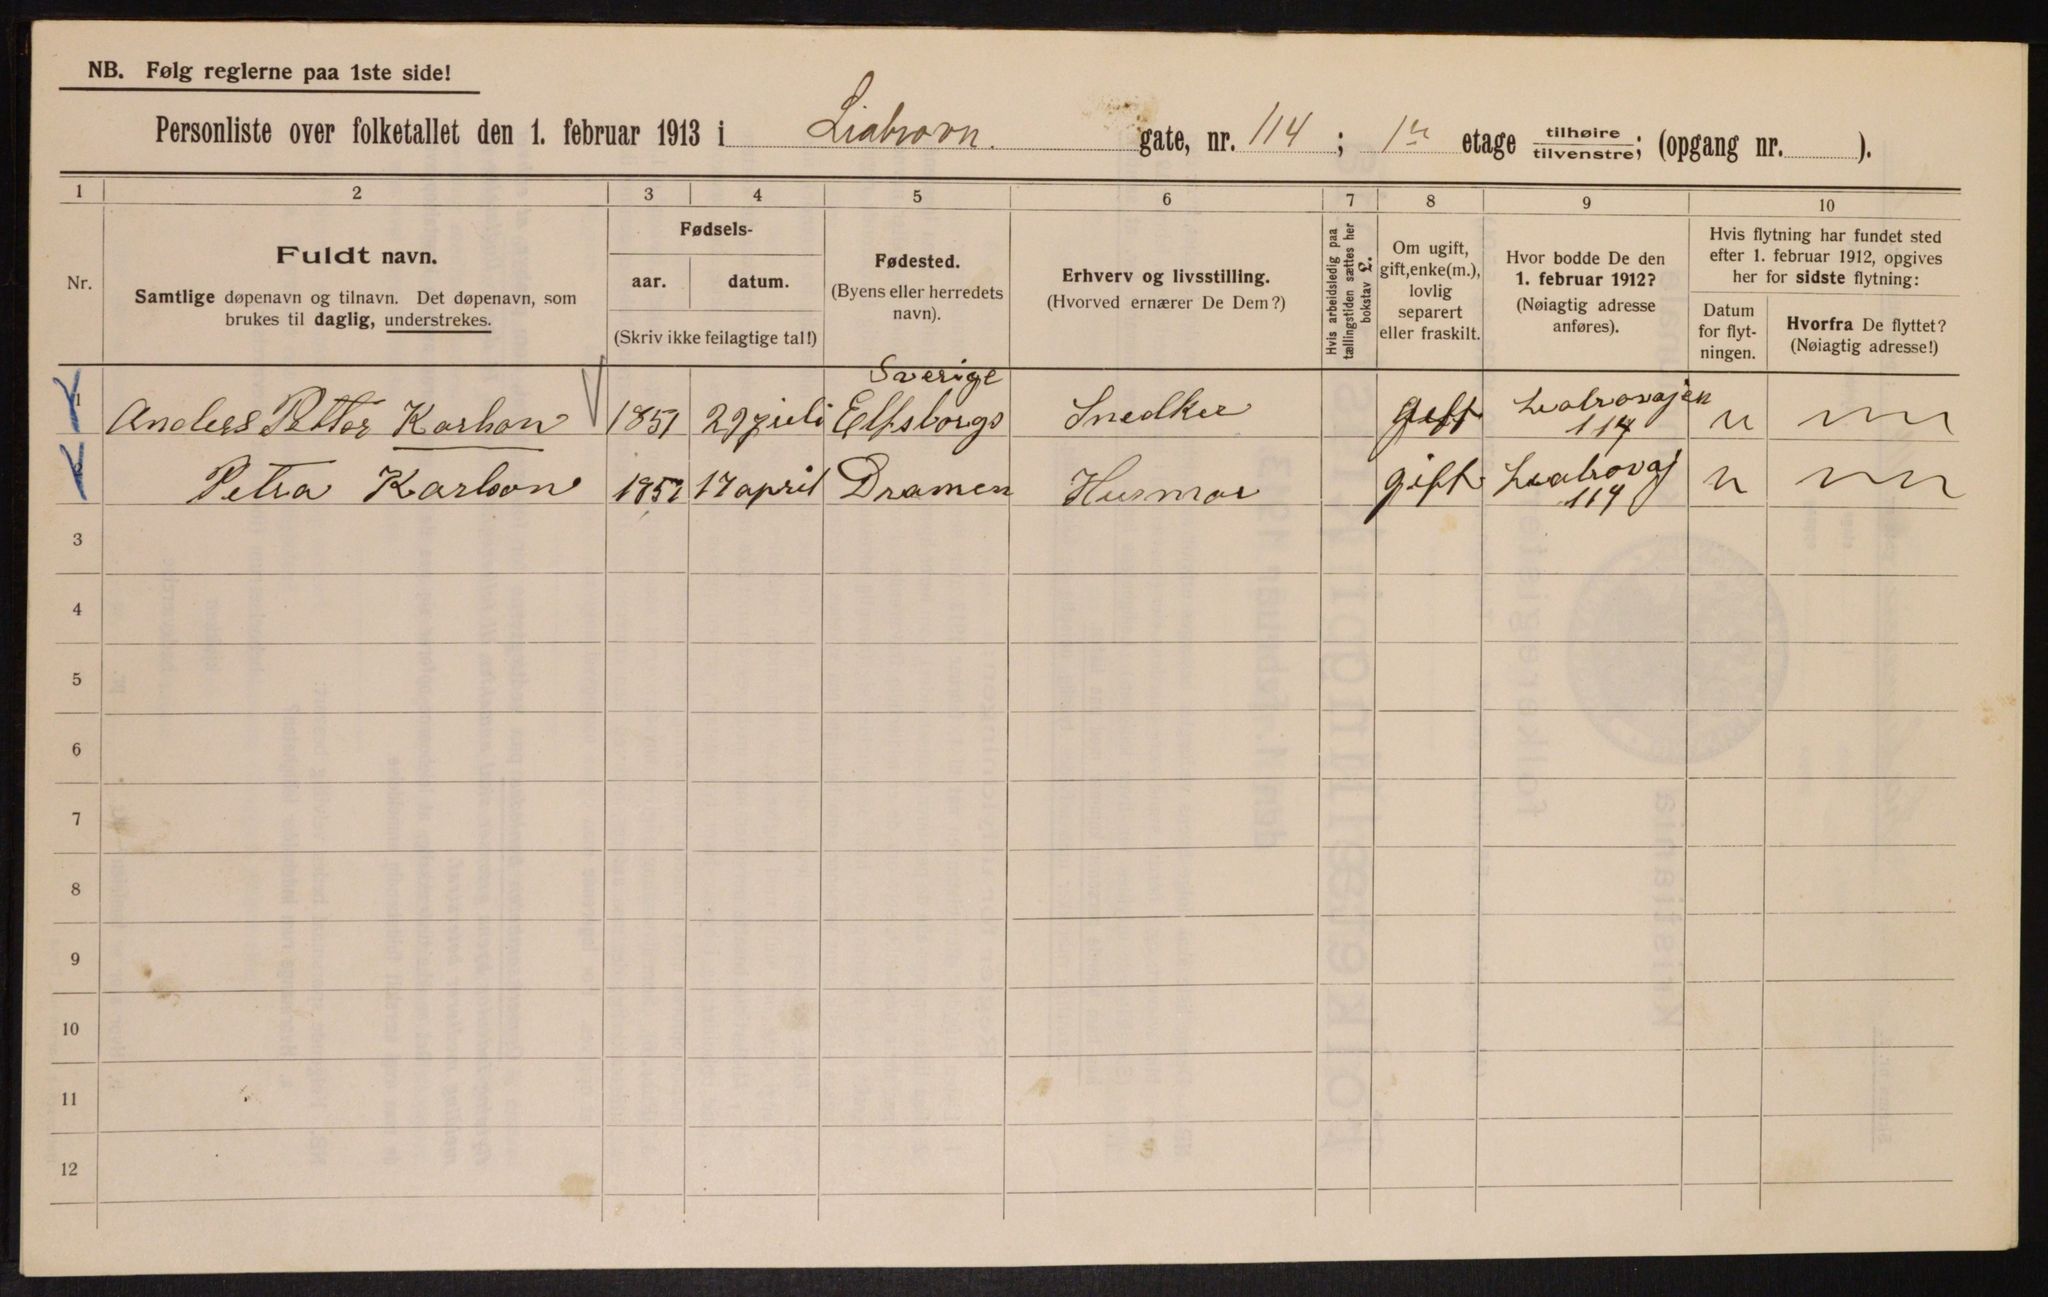 NB. Følg reglerne paa 1ste side!
Personliste over folketallet den 1. februar 1913 i Liabrovn. gate, nr. 114 ; 1ste etage tilhøire tilvenstre; (opgang nr. ).
1 2 3 4 5 6 7 8 9 10
Nr.
Fuldt navn.
Samtlige døpenavn og tilnavn. Det døpenavn, som
brukes til daglig, understrekes.
Fødsels-
aar. datum.
(Skriv ikke feilagtige tal!)
Fødested.
(Byens eller herredets
navn).
Erhverv og livsstilling.
(Hvorved ernærer De Dem?)
Hvis arbeidsledig paa
tællingstiden sættes her
bokstav L.
Om ugift,
gift, enke(m.),
lovlig
separert
eller fraskilt.
Hvor bodde De den
1. februar 1912?
(Nøiagtig adresse
anføres).
Hvis flytning har fundet sted
efter 1. februar 1912, opgives
her for sidste flytning:
Datum
for flyt-
ningen.
Hvorfra De flyttet?
(Nøiagtig adresse!)
Sverige
1 Anders Petter Karlson 1851 29 juli Elfsborgs Snedker gift Liabrovajen
114
Petra Karlson 1852 17 april Dramen Husmor gift Liabrovaj
114
3
4
5
6
7
8
9
10
11
12